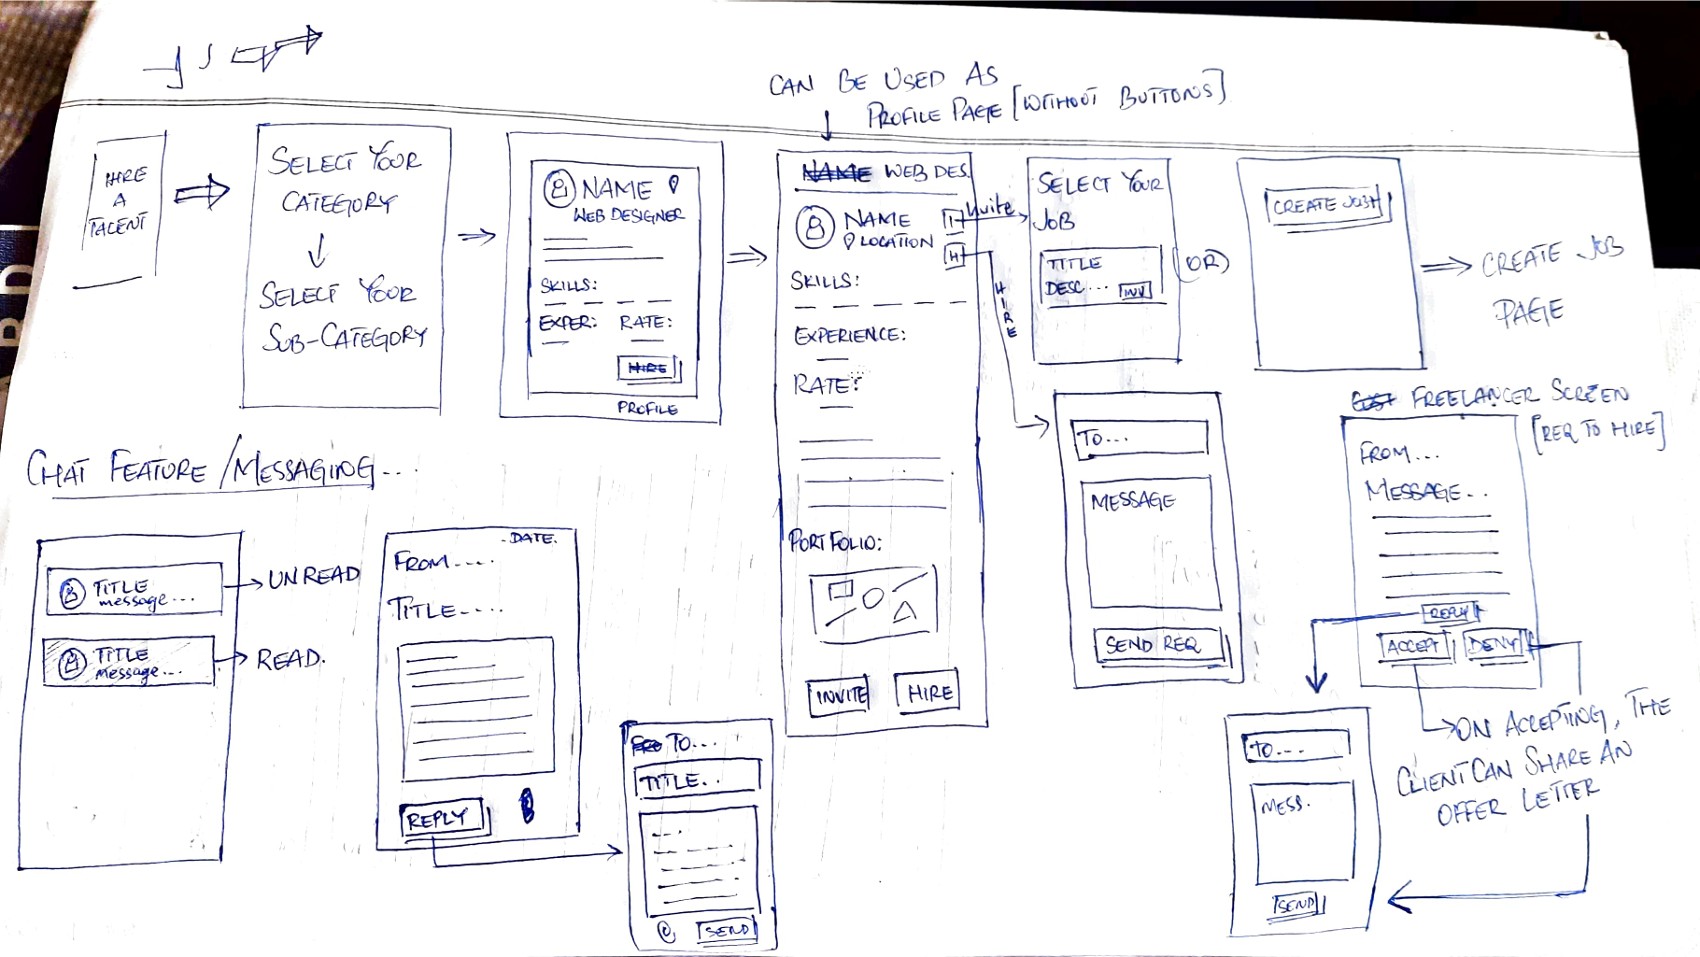 CAN BE USED AS
PROFILE PAGE [WITHOUT BUTTONS]
HIRE
A
TALENT
SELECT YOUR
CATEGORY
SELECT YOUR
SUB-CATEGORY
NAME
WEB DESIGNER
SKILLS:
EXPER: RATE:
HIRE
PROFILE
NAME WEB DES.
NAME
LOCATION
I
H
SKILLS:
EXPERIENCE:
RATE:
PORTFOLIO:
INVITE HIRE
Invite
HIRE
SELECT YOUR
JOB
TITLE
DESC... INV
(OR)
CREATE JOB+
CREATE JOB
PAGE
TO...
MESSAGE
SEND REQ
FREELANCER SCREEN
[REQ TO HIRE]
FROM...
MESSAGE...
REPLY
ACCEPT DENY
ON ACCEPTING, THE
CLIENT CAN SHARE AN
OFFER LETTER
TO....
MESS.
SEND
CHAT FEATURE/MESSAGING...
TITLE
message...
UNREAD
TITLE
message...
READ.
DATE.
FROM....
TITLE.....
REPLY
TO...
TITLE..
SEND